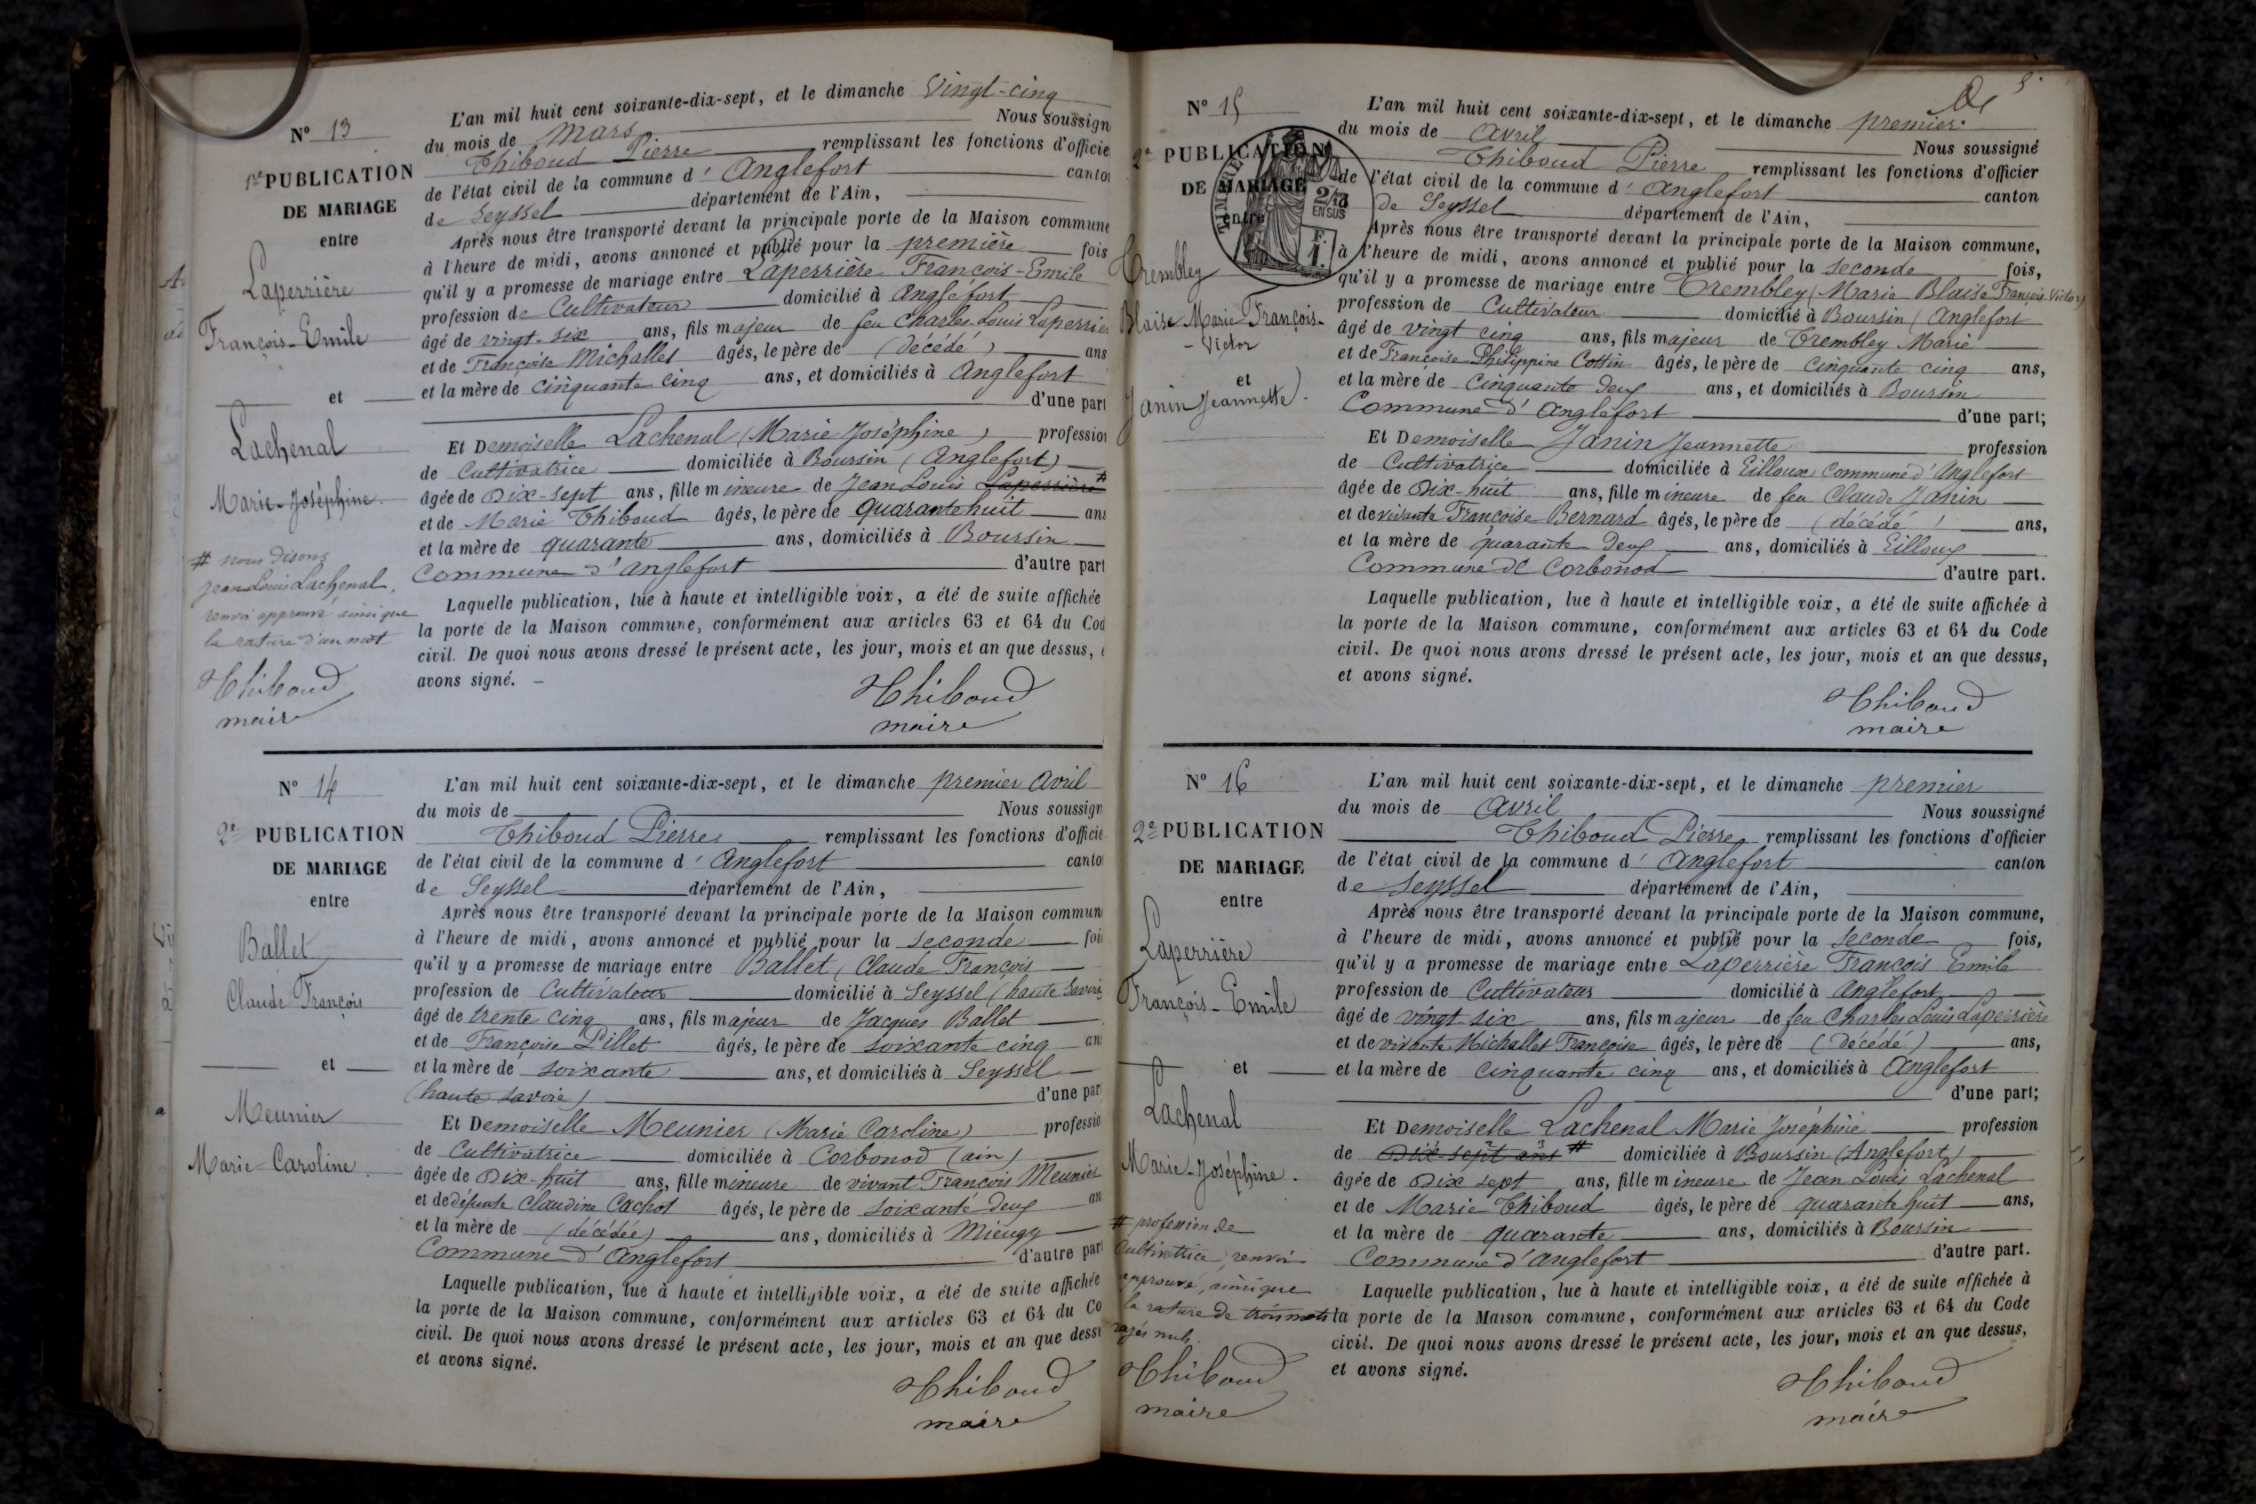 N° 13
1re PUBLICATION
DE MARIAGE
entre
Laperrière
François-Emile
et
Lachenal
Marie-Joséphine.
# nous disons
Jean Louis Lachenal,
renvoi approuvé ainsi que
la rature d'un mot
Thiboud
maire
L'an mil huit cent soixante-dix-sept, et le dimanche Vingt-cinq
du mois de Mars Nous soussign
Thiboud Pierre remplissant les fonctions d'officie
de l'état civil de la commune d' Anglefort canton
de Seyssel département de l'Ain,
Après nous être transporté devant la principale porte de la Maison commune
à l'heure de midi, avons annoncé et publié pour la première fois
qu'il y a promesse de mariage entre Laperrière François-Emile
profession de Cultivateur domicilié à Anglefort
âgé de vingt-six ans, fils majeur de feu Charles Louis Laperrier
et de Françoise Michallet âgés, le père de (décédé) ans
et la mère de cinquante cinq ans, et domiciliés à Anglefort
d'une part
Et Demoiselle Lachenal (Marie Joséphine) profession
de Cultivatrice domiciliée à Boursin (Anglefort)
âgée de Dix-sept ans, fille mineure de Jean Louis Laperrière #
et de Marie Thiboud âgés, le père de quarante huit ans
et la mère de quarante ans, domiciliés à Boursin
Commune d'Anglefort d'autre part
Laquelle publication, lue à haute et intelligible voix, a été de suite affichée
la porte de la Maison commune, conformément aux articles 63 et 64 du Cod
civil. De quoi nous avons dressé le présent acte, les jour, mois et an que dessus, e
avons signé.
Thiboud
maire
N° 14
2e PUBLICATION
DE MARIAGE
entre
Ballet
Claude François
et
Meunier
Marie-Caroline.
L'an mil huit cent soixante-dix-sept, et le dimanche premier Avril
du mois de Nous soussign
Thiboud Pierre remplissant les fonctions d'officie
de l'état civil de la commune d' Anglefort canto
de Seyssel département de l'Ain,
Après nous être transporté devant la principale porte de la Maison commun
à l'heure de midi, avons annoncé et publié pour la seconde foi
qu'il y a promesse de mariage entre Ballet (Claude François
profession de Cultivateur domicilié à Seyssel (haute Savoie)
âgé de trente cinq ans, fils majeur de Jacques Ballet
et de Françoise Pillet âgés, le père de soixante cinq an
et la mère de soixante ans, et domiciliés à Seyssel
(haute Savoie) d'une par
Et Demoiselle Meunier (Marie Caroline) professio
de Cultivatrice domiciliée à Corbonod (ain)
âgée de Dix-huit ans, fille mineure de vivant François Meunier
et de défunte Claudine Cachot âgés, le père de soixante deux an
et la mère de (décédée) ans, domiciliés à Mieugy
Commune d'Anglefort d'autre part
Laquelle publication, lue à haute et intelligible voix, a été de suite affichée
la porte de la Maison commune, conformément aux articles 63 et 64 du Co
civil. De quoi nous avons dressé le présent acte, les jour, mois et an que dess
et avons signé.
Thiboud
maire
N° 15
2e PUBLICATION
DE MARIAGE
entre
TIMBRE
2/10
EN SUS
F.
1.
Trembley
Blaise Marie François-
- Victor
et
Janin Jeannette.
5.
L'an mil huit cent soixante-dix-sept, et le dimanche premier
du mois de Avril Nous soussigné
Thiboud Pierre remplissant les fonctions d'officier
de l'état civil de la commune d' Anglefort canton
de Seyssel département de l'Ain,
Après nous être transporté devant la principale porte de la Maison commune,
à l'heure de midi, avons annoncé et publié pour la seconde fois,
qu'il y a promesse de mariage entre Trembley (Marie Blaise François Victor)
profession de Cultivateur domicilié à Boursin (Anglefort
âgé de vingt cinq ans, fils majeur de Trembley Marie
et de Françoise Philippine Cottin âgés, le père de cinquante cinq ans,
et la mère de cinquante deux ans, et domiciliés à Boursin
Commune d'Anglefort d'une part;
Et Demoiselle Janin Jeannette profession
de Cultivatrice domiciliée à Eilloux Commune d'Anglefort
âgée de Dix-huit ans, fille mineure de feu Claude Janin
et de vivante Françoise Bernard âgés, le père de (décédé) ans,
et la mère de quarante deux ans, domiciliés à Eilloux
Commune de Corbonod d'autre part.
Laquelle publication, lue à haute et intelligible voix, a été de suite affichée à
la porte de la Maison commune, conformément aux articles 63 et 64 du Code
civil. De quoi nous avons dressé le présent acte, les jour, mois et an que dessus,
et avons signé.
Thiboud
maire
N° 16
2e PUBLICATION
DE MARIAGE
entre
Laperrière
François-Emile
et
Lachenal
Marie-Joséphine.
# profession de
Cultivatrice, renvoi
approuvé, ainsi que
la rature de trois mots
rayés nuls.
Thiboud
maire
L'an mil huit cent soixante-dix-sept, et le dimanche premier
du mois de Avril Nous soussigné
Thiboud Pierre remplissant les fonctions d'officier
de l'état civil de la commune d' Anglefort canton
de Seyssel département de l'Ain,
Après nous être transporté devant la principale porte de la Maison commune,
à l'heure de midi, avons annoncé et publié pour la seconde fois,
qu'il y a promesse de mariage entre Laperrière François Emile
profession de Cultivateur domicilié à Anglefort
âgé de vingt six ans, fils majeur de feu Charles Louis Laperrière
et de vivante Michallet Françoise âgés, le père de (décédé) ans,
et la mère de cinquante cinq ans, et domiciliés à Anglefort
d'une part;
Et Demoiselle Lachenal Marie Joséphine profession
de Dix-sept ans # domiciliée à Boursin (Anglefort)
âgée de Dix sept ans, fille mineure de Jean Louis Lachenal
et de Marie Thiboud âgés, le père de quarante huit ans,
et la mère de quarante ans, domiciliés à Boursin
Commune d'Anglefort d'autre part.
Laquelle publication, lue à haute et intelligible voix, a été de suite affichée à
la porte de la Maison commune, conformément aux articles 63 et 64 du Code
civil. De quoi nous avons dressé le présent acte, les jour, mois et an que dessus,
et avons signé.
Thiboud
maire